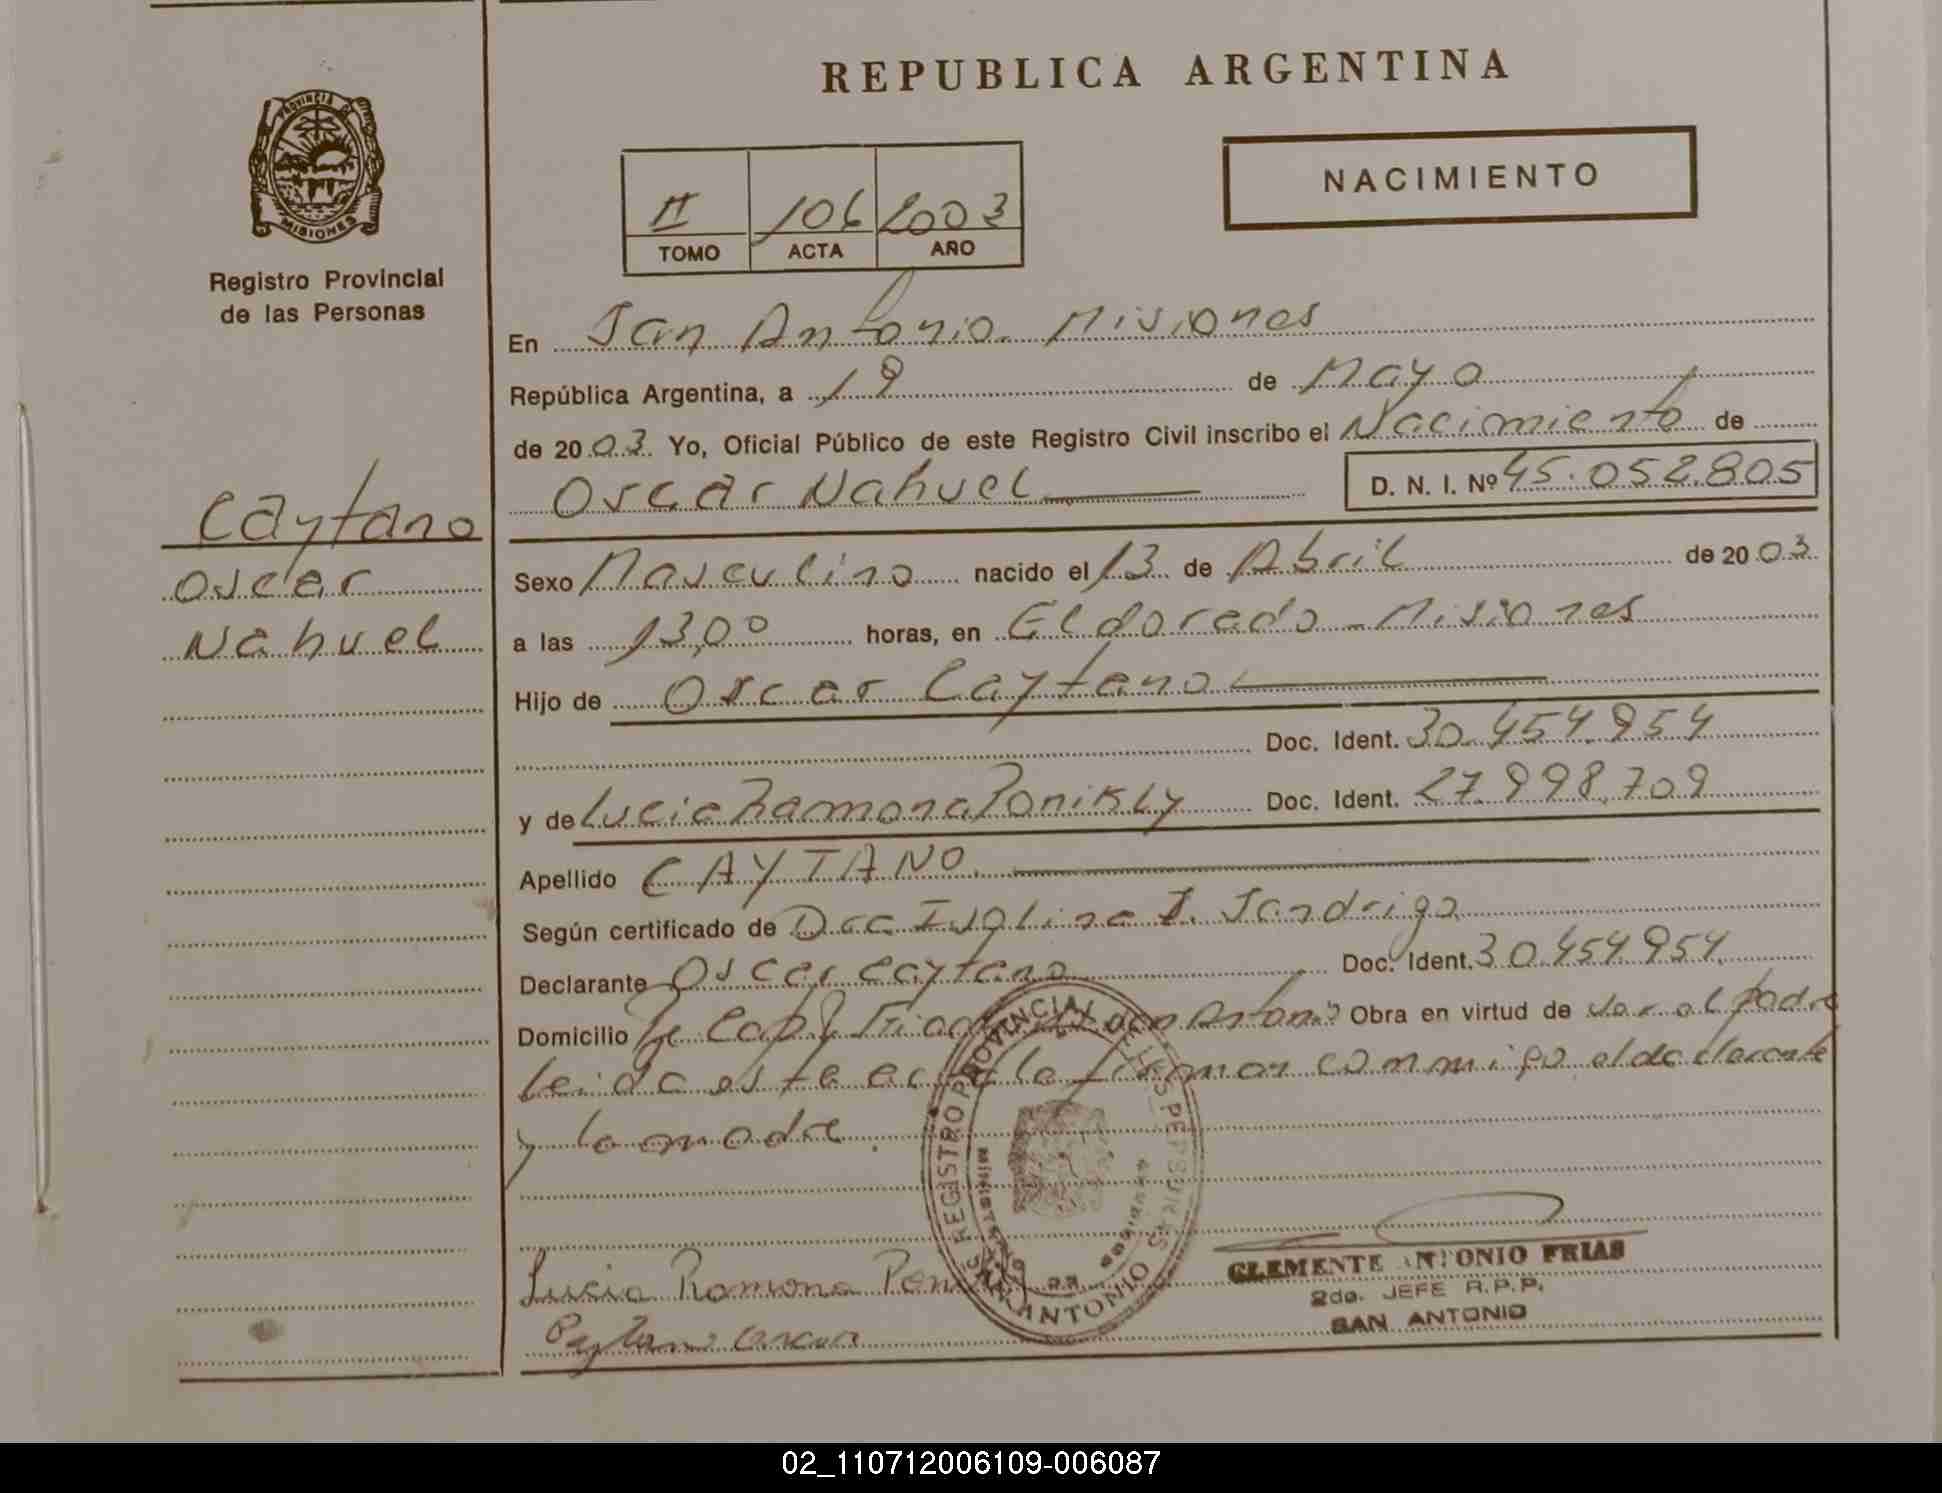 REPUBLICA ARGENTINA
PROVINCIA DE MISIONES
Registro Provincial
de las Personas
NACIMIENTO
II 106 2003
TOMO ACTA AÑO
En San Antonio. Misiones
República Argentina, a 19 de Mayo
de 2003. Yo, Oficial Público de este Registro Civil inscribo el Nacimiento de
Oscar Nahuel D. N. I. Nº 45.052.805
Caytano
Oscar
Nahuel
Sexo Masculino nacido el 13 de Abril de 2003
a las 13,00 horas, en Eldorado - Misiones
Hijo de Oscar Caytano
Doc. Ident. 30.454.954
y de Lucia Ramona Ponikly Doc. Ident. 27.998.709
Apellido CAYTANO
Según certificado de Dra I. Sandrigo
Declarante Oscar Caytano Doc. Ident. 30.454.954
Domicilio San Antonio Obra en virtud de ser el padre
Leida este acta la firman conmigo el declarante
y la madre.
REGISTRO PROVINCIAL DE LAS PERSONAS
SAN ANTONIO
Lucia Ramona
CLEMENTE ANTONIO FRIAS
2do. JEFE R.P.P.
SAN ANTONIO
02_110712006109-006087